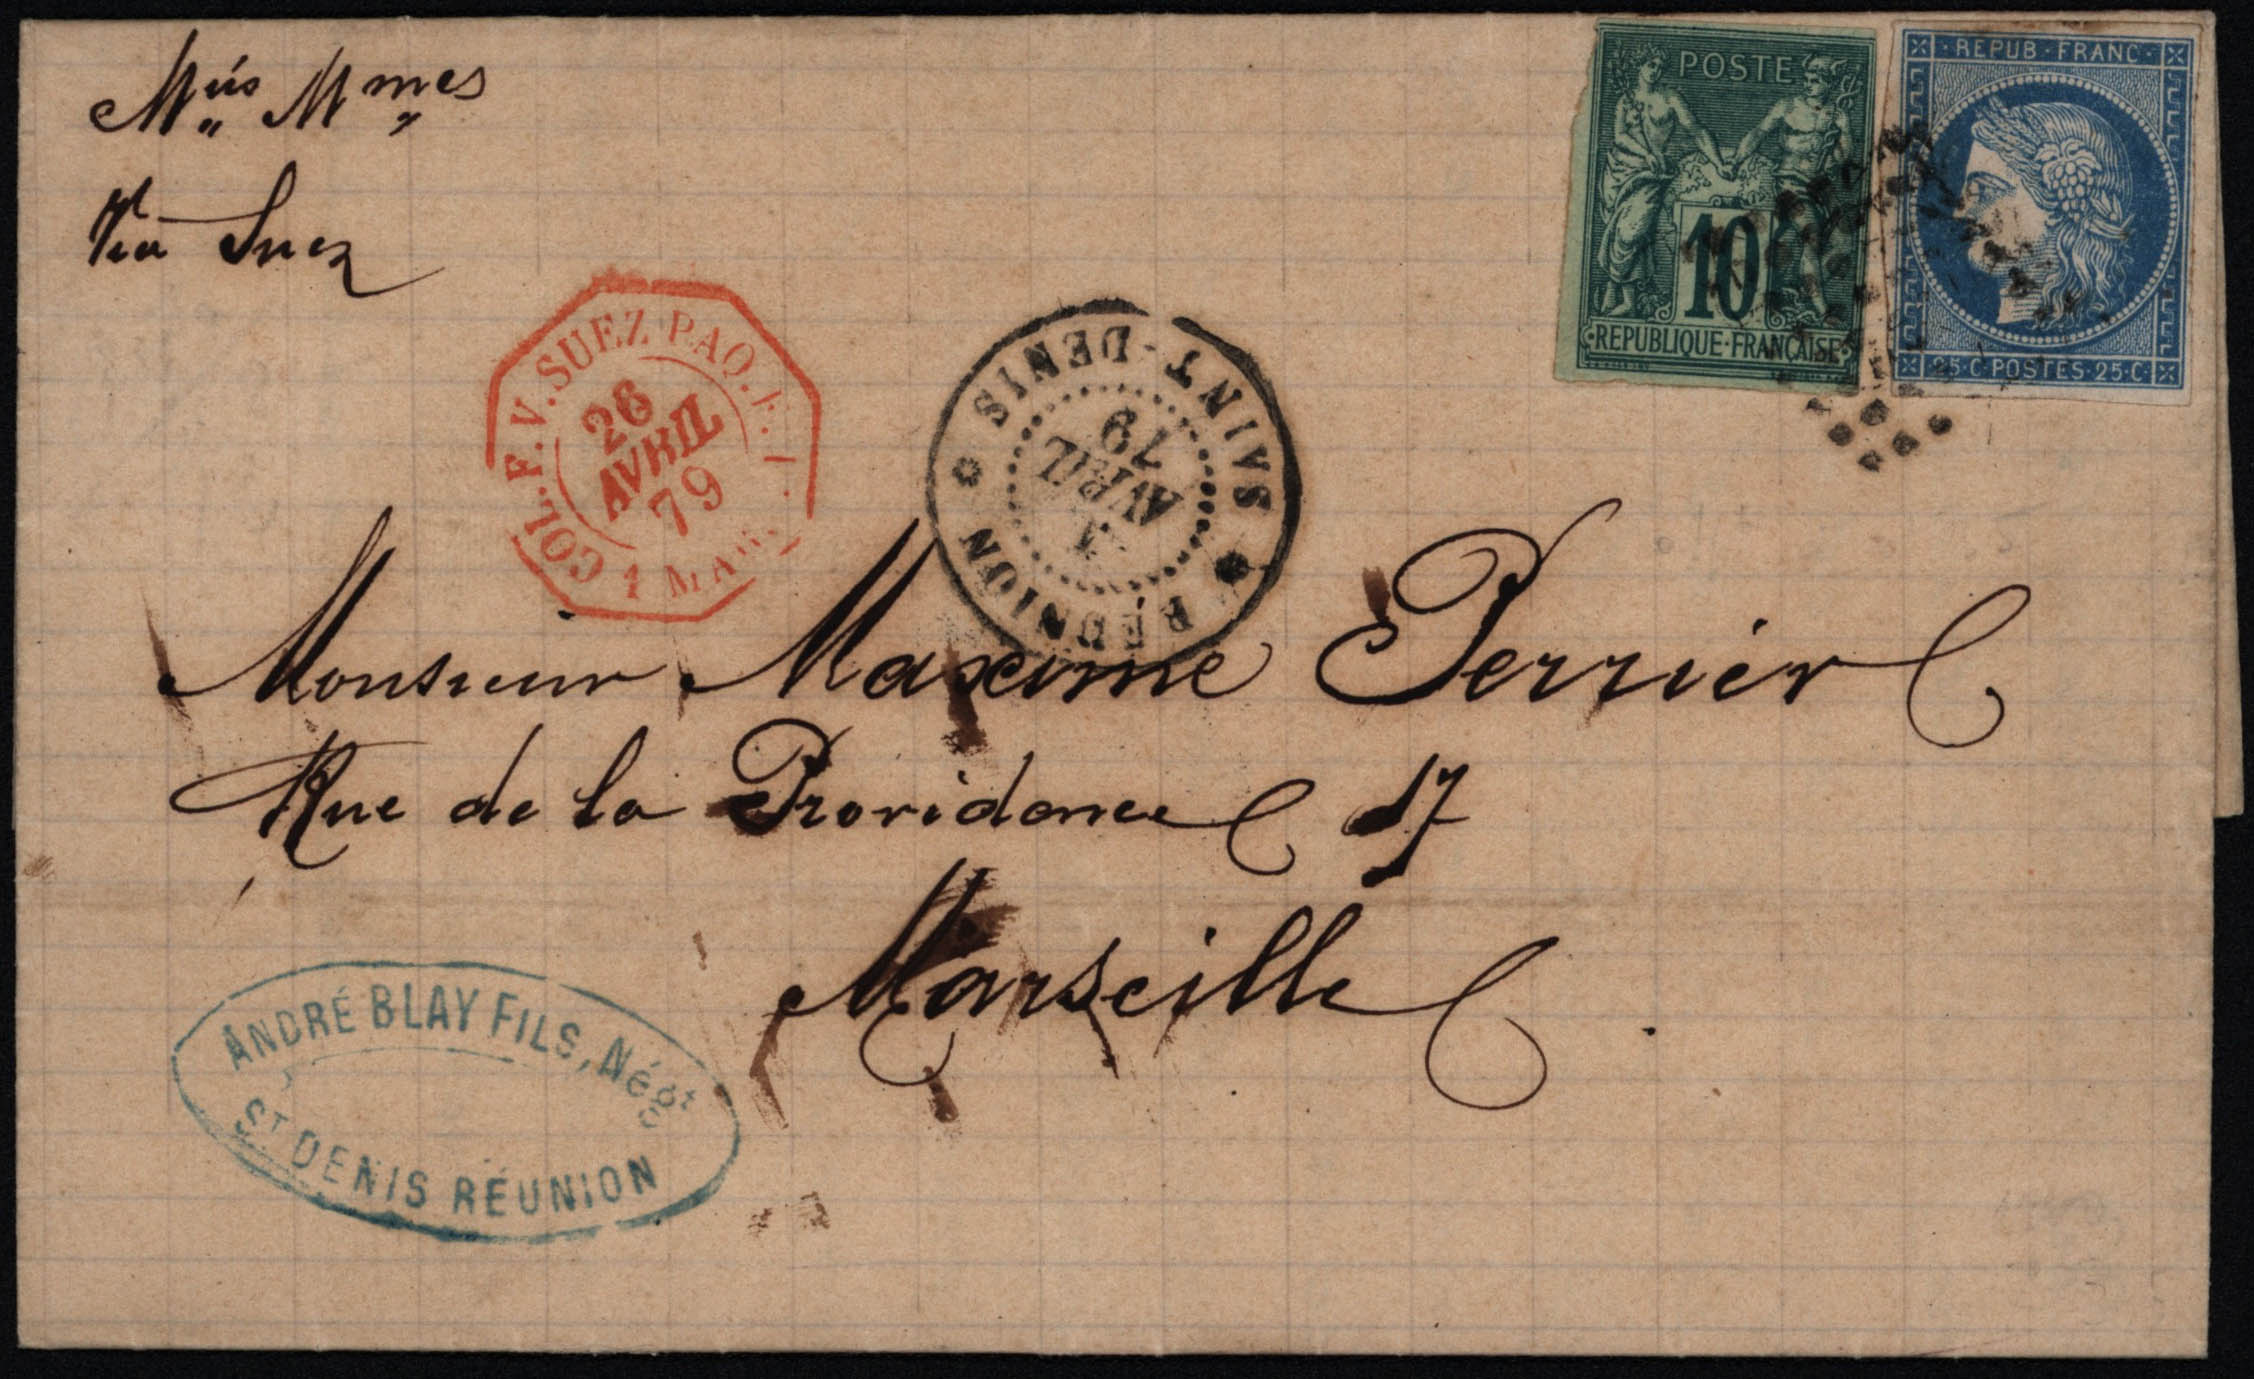 Mies Mmes
Via Suez
POSTE
10
REPUBLIQUE·FRANÇAISE
REPUB·FRANC·
25·C·POSTES·25·C·
COL.F.V.SUEZ PAQ.F.
26
AVRIL
79
1 MARS.
SAINT-DENIS
AVRIL
79
RÉUNION
Monsieur Maxime Perrier
Rue de la Providence 17
Marseille
ANDRÉ BLAY FILS, Négt
ST DENIS RÉUNION